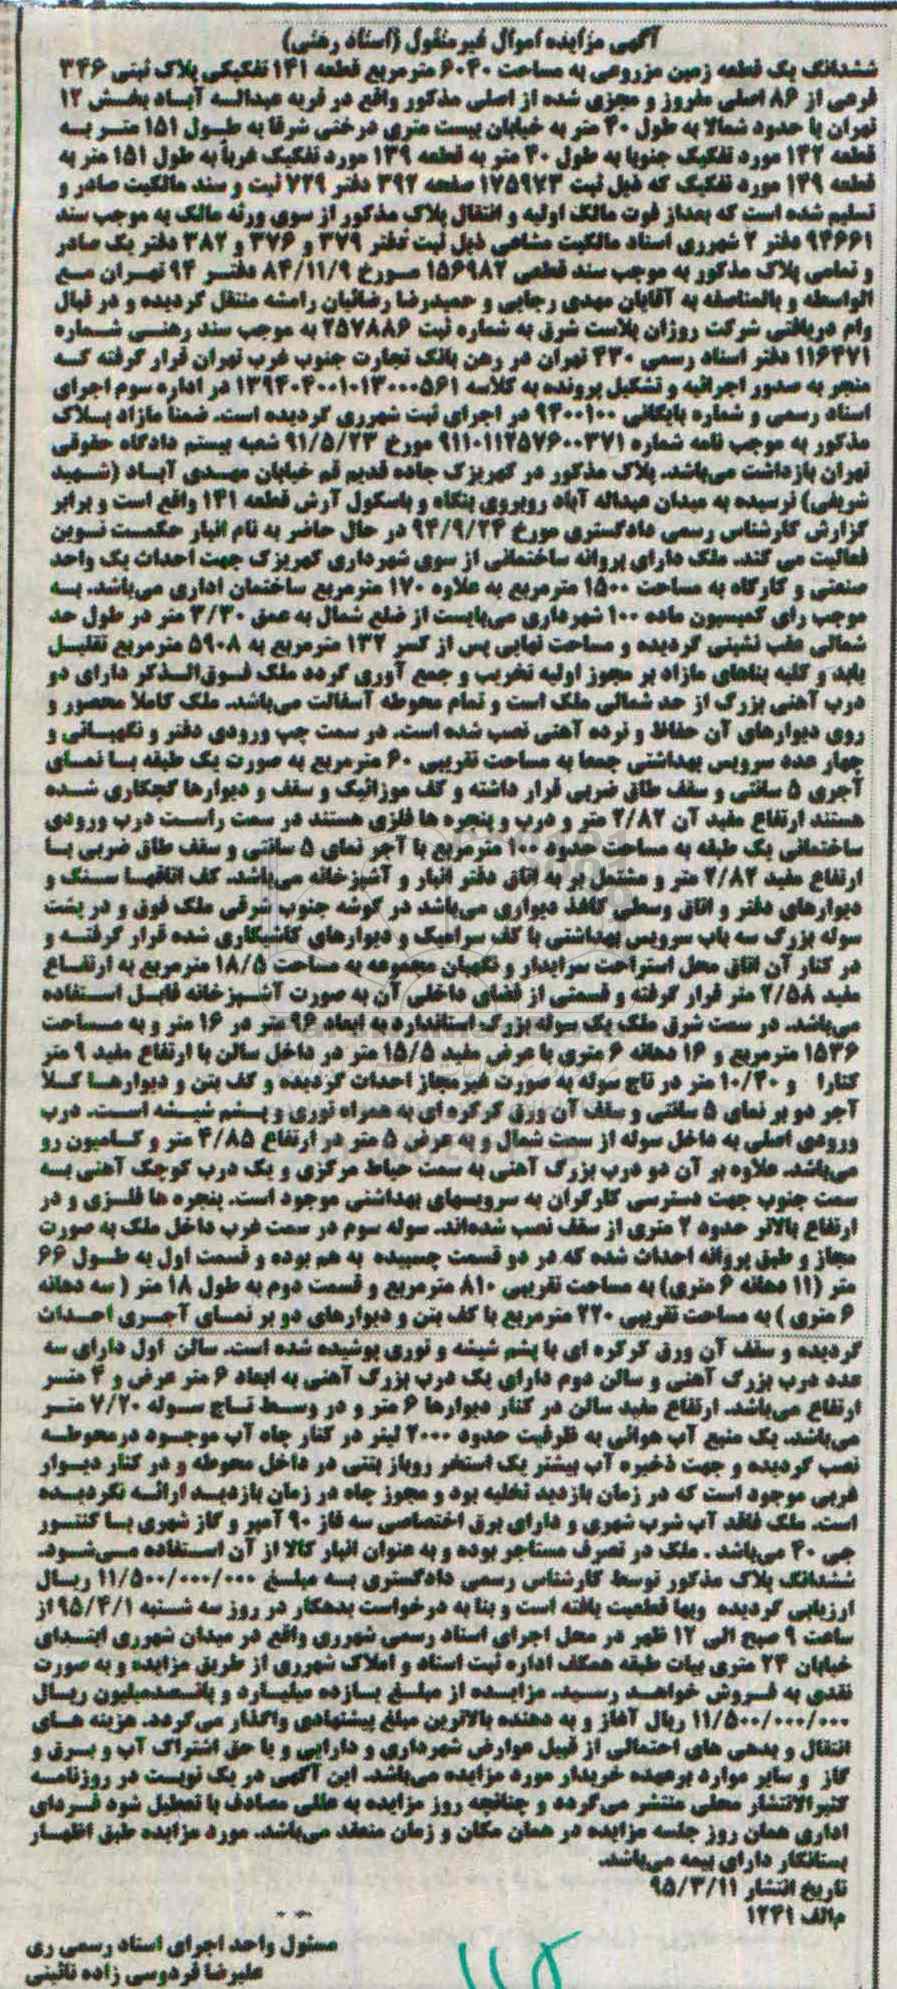 آگهی مزایده اموال غیرمنقول (اسناد رهنی)
ششدانگ یک قطعه زمین مزروعی به مساحت ۶۰۴۰ مترمربع قطعه ۱۴۱ تفکیکی پلاک ثبتی ۳۴۶
فرعی از ۸۶ اصلی مفروز و مجزی شده از اصلی مذکور واقع در قریه عبداله آباد بخش ۱۲
تهران با حدود شمالا به طول ۴۰ متر به خیابان بیست متری درختی شرقا به طول ۱۵۱ متر به
قطعه ۱۴۲ مورد تفکیک جنوبا به طول ۴۰ متر به قطعه ۱۳۹ مورد تفکیک غرباً به طول ۱۵۱ متر به
قطعه ۱۴۹ مورد تفکیک که ذیل ثبت ۱۷۵۹۷۳ صفحه ۳۹۲ دفتر ۷۲۹ ثبت و سند مالکیت صادر و
تسلیم شده است که بعداز فوت مالک اولیه و انتقال پلاک مذکور از سوی ورثه مالک به موجب سند
۹۴۶۶۱ دفتر ۲ شهرری اسناد مالکیت مشاعی ذیل ثبت دفتر ۳۷۹ و ۳۷۶ و ۳۸۲ دفتر یک صادر
و تمامی پلاک مذکور به موجب سند قطعی ۱۵۶۹۸۲ مورخ ۸۴/۱۱/۹ دفتر ۹۴ تهران مع
الواسطه و بالمناصفه به آقایان مهدی رجایی و حمیدرضا رضائیان رامشه منتقل گردیده و در قبال
وام دریافتی شرکت روژان پلاست شرق به شماره ثبت ۲۵۷۸۸۶ به موجب سند رهنی شماره
۱۱۶۴۷۱ دفتر اسناد رسمی ۴۳۰ تهران در رهن بانک تجارت جنوب غرب تهران قرار گرفته که
منجر به صدور اجرائیه و تشکیل پرونده به کلاسه ۱۳۹۴۰۴۰۰۱۰۱۳۰۰۰۵۶۱ در اداره سوم اجرای
اسناد رسمی و شماره بایگانی ۹۴۰۰۱۰۰ در اجرای ثبت شهرری گردیده است. ضمناً مازاد پلاک
مذکور به موجب نامه شماره ۹۱۱۰۱۱۲۵۷۶۰۰۳۷۱ مورخ ۹۱/۵/۲۳ شعبه بیستم دادگاه حقوقی
تهران بازداشت می‌باشد. پلاک مذکور در کهریزک جاده قدیم قم خیابان مهدی آباد (شهید
شریفی) نرسیده به میدان عبداله آباد روبروی بنگاه و باسکول آرش قطعه ۱۴۱ واقع است و برابر
گزارش کارشناس رسمی دادگستری مورخ ۹۴/۹/۲۴ در حال حاضر به نام انبار حکمت نوین
فعالیت می کند. ملک دارای پروانه ساختمانی از سوی شهرداری کهریزک جهت احداث یک واحد
صنعتی و کارگاه به مساحت ۱۵۰۰ مترمربع به علاوه ۱۷۰ مترمربع ساختمان اداری می‌باشد. به
موجب رای کمیسیون ماده ۱۰۰ شهرداری می‌بایست از ضلع شمال به عمق ۳/۳۰ متر در طول حد
شمالی عقب نشینی گردیده و مساحت نهایی پس از کسر ۱۳۲ مترمربع به ۵۹۰۸ مترمربع تقلیل
یابد و کلیه بناهای مازاد بر مجوز اولیه تخریب و جمع آوری گردد ملک فوق‌الذکر دارای دو
درب آهنی بزرگ از حد شمالی ملک است و تمام محوطه آسفالت می‌باشد. ملک کاملا محصور و
روی دیوارهای آن حفاظ و نرده آهنی نصب شده است. در سمت چپ ورودی دفتر و نگهبانی و
چهار عدد سرویس بهداشتی جمعا به مساحت تقریبی ۶۰ مترمربع به صورت یک طبقه با نمای
آجری ۵ سانتی و سقف طاق ضربی قرار داشته و کف موزائیک و سقف و دیوارها گچکاری شده
هستند ارتفاع مفید آن ۲/۸۲ متر و درب و پنجره ها فلزی هستند در سمت راست درب ورودی
ساختمانی یک طبقه به مساحت حدود ۱۰۰ مترمربع با آجر نمای ۵ سانتی و سقف طاق ضربی با
ارتفاع مفید ۲/۸۲ متر و مشتمل بر به اتاق دفتر انبار و آشپزخانه می‌باشد. کف اتاقها سنگ و
دیوارهای دفتر و اتاق وسطی کاغذ دیواری می‌باشد در گوشه جنوب شرقی ملک فوق و در پشت
سوله بزرگ سه باب سرویس بهداشتی با کف سرامیک و دیوارهای کاشیکاری شده قرار گرفته و
در کنار آن اتاق محل استراحت سرایدار و نگهبان مجموعه به مساحت ۱۸/۵ مترمربع به ارتفاع
مفید ۲/۵۸ متر قرار گرفته و قسمتی از فضای داخلی آن به صورت آشپزخانه قابل استفاده
می‌باشد. در سمت شرق ملک یک سوله بزرگ استاندارد به ابعاد ۹۶ متر در ۱۶ متر و به مساحت
۱۵۳۶ مترمربع و ۱۶ دهانه ۶ متری با عرض مفید ۱۵/۵ متر در داخل سالن با ارتفاع مفید ۹ متر
کنارا و ۱۰/۴۰ متر در تاج سوله به صورت غیرمجاز احداث گردیده و کف بتن و دیوارها کلا
آجر دو بر نمای ۵ سانتی و سقف آن ورق کرکره ای به همراه نوری و پشم شیشه است. درب
ورودی اصلی به داخل سوله از سمت شمال و به عرض ۵ متر در ارتفاع ۴/۸۵ متر و کامیون رو
می‌باشد. علاوه بر آن دو درب بزرگ آهنی به سمت حیاط مرکزی و یک درب کوچک آهنی به
سمت جنوب جهت دسترسی کارگران به سرویسهای بهداشتی موجود است. پنجره ها فلزی و در
ارتفاع بالاتر حدود ۲ متری از سقف نصب شده‌اند. سوله سوم در سمت غرب داخل ملک به صورت
مجاز و طبق پروانه احداث شده که در دو قسمت چسبیده به هم بوده و قسمت اول به طول ۶۶
متر (۱۱ دهانه ۶ متری) به مساحت تقریبی ۸۱۰ مترمربع و قسمت دوم به طول ۱۸ متر ( سه دهانه
۶ متری ) به مساحت تقریبی ۲۲۰ مترمربع با کف بتن و دیوارهای دو بر نمای آجری احداث
گردیده و سقف آن ورق کرکره ای با پشم شیشه و نوری پوشیده شده است. سالن اول دارای سه
عدد درب بزرگ آهنی و سالن دوم دارای یک درب بزرگ آهنی به ابعاد ۶ متر عرض و ۴ متر
ارتفاع می‌باشد. ارتفاع مفید سالن در کنار دیوارها ۶ متر و در وسط تاج سوله ۷/۲۰ متر
می‌باشد. یک منبع آب هوائی به ظرفیت حدود ۲۰۰۰ لیتر در کنار چاه آب موجود درمحوطه
نصب گردیده و جهت ذخیره آب بیشتر یک استخر روباز بتنی در داخل محوطه و در کنار دیوار
غربی موجود است که در زمان بازدید تخلیه بود و مجوز چاه در زمان بازدید ارائه نگردیده
است. ملک فاقد آب شرب شهری و دارای برق اختصاصی سه فاز ۹۰ آمپر و گاز شهری با کنتور
جی ۴۰ می‌باشد . ملک در تصرف مستاجر بوده و به عنوان انبار کالا از آن استفاده می‌شود.
ششدانگ پلاک مذکور توسط کارشناس رسمی دادگستری به مبلغ ۱۱/۵۰۰/۰۰۰/۰۰۰ ریال
ارزیابی گردیده وبها قطعیت یافته است و بنا به درخواست بدهکار در روز سه شنبه ۹۵/۴/۱ از
ساعت ۹ صبح الی ۱۲ ظهر در محل اجرای اسناد رسمی شهرری واقع در میدان شهرری ابتدای
خیابان ۲۴ متری بیات طبقه همکف اداره ثبت اسناد و املاک شهرری از طریق مزایده و به صورت
نقدی به فروش خواهد رسید. مزایده از مبلغ یازده میلیارد و پانصدمیلیون ریال
۱۱/۵۰۰/۰۰۰/۰۰۰ ریال آغاز و به دهنده بالاترین مبلغ پیشنهادی واگذار می‌گردد. هزینه های
انتقال و بدهی های احتمالی از قبیل عوارض شهرداری و دارایی و یا حق اشتراک آب و برق و
گاز و سایر موارد برعهده خریدار مورد مزایده می‌باشد. این آگهی در یک نوبت در روزنامه
کثیرالانتشار محلی منتشر می‌گردد و چنانچه روز مزایده به عللی مصادف با تعطیل شود فردای
اداری همان روز جلسه مزایده در همان مکان و زمان منعقد می‌باشد. مورد مزایده طبق اظهار
بستانکار دارای بیمه می‌باشد.
تاریخ انتشار ۹۵/۳/۱۱
م‌الف ۱۲۴۱
مسئول واحد اجرای اسناد رسمی ری
علیرضا فردوسی زاده نائینی